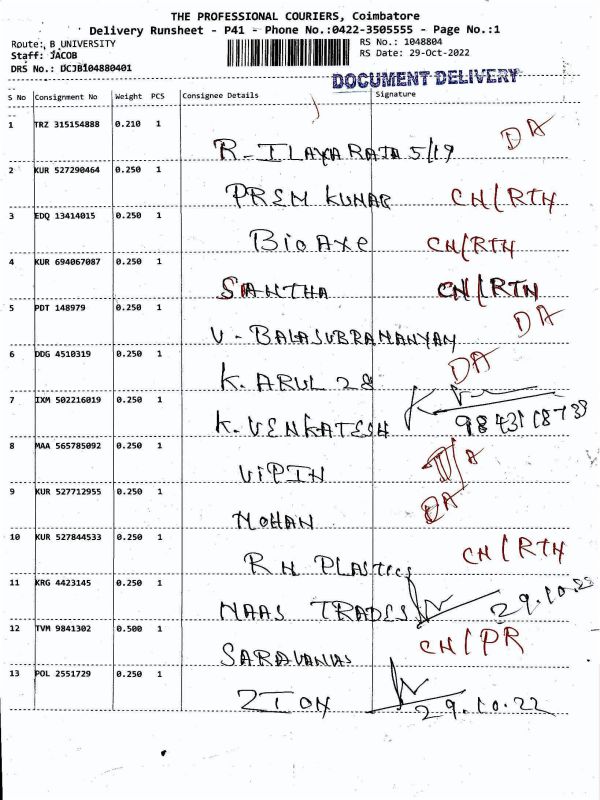 THE PROFESSIONAL COURIERS, Coimbatore
Delivery Runsheet - P41 - Phone No.:0422-3505555 - Page No.:1
Route: B_UNIVERSITY RS No.: 1048804
Staff: JACOB RS Date: 29-Oct-2022
DRS No.: DCJB104880401
DOCUMENT DELIVERY
S No Consignment No Weight PCS Consignee Details Signature
1 TRZ 315154888 0.210 1
R-ILAYARAJA 5/19 DA
2 KUR 527290464 0.250 1
PREM KUMAR CN/RTN
3 EDQ 13414015 0.250 1
BioAxe CN/RTN
4 KUR 694067087 0.250 1
SANTHA CN/RTN
5 PDT 148979 0.250 1
V-BALASUBRAMANYAM DA
6 DDG 4510319 0.250 1
K. ARUL 28 DA
7 IXM 502216019 0.250 1
K. VENKATESH
8 MAA 565785092 0.250 1
VIPIN D/A
9 KUR 527712955 0.250 1
MOHAN DA
10 KUR 527844533 0.250 1
R N PLASTICS CN/RTN
11 KRG 4423145 0.250 1
NAAS TRADES 29.10.22
12 TVM 9841302 0.500 1
SARAVANAS CN/PR
13 POL 2551729 0.250 1
ZION 29.10.22